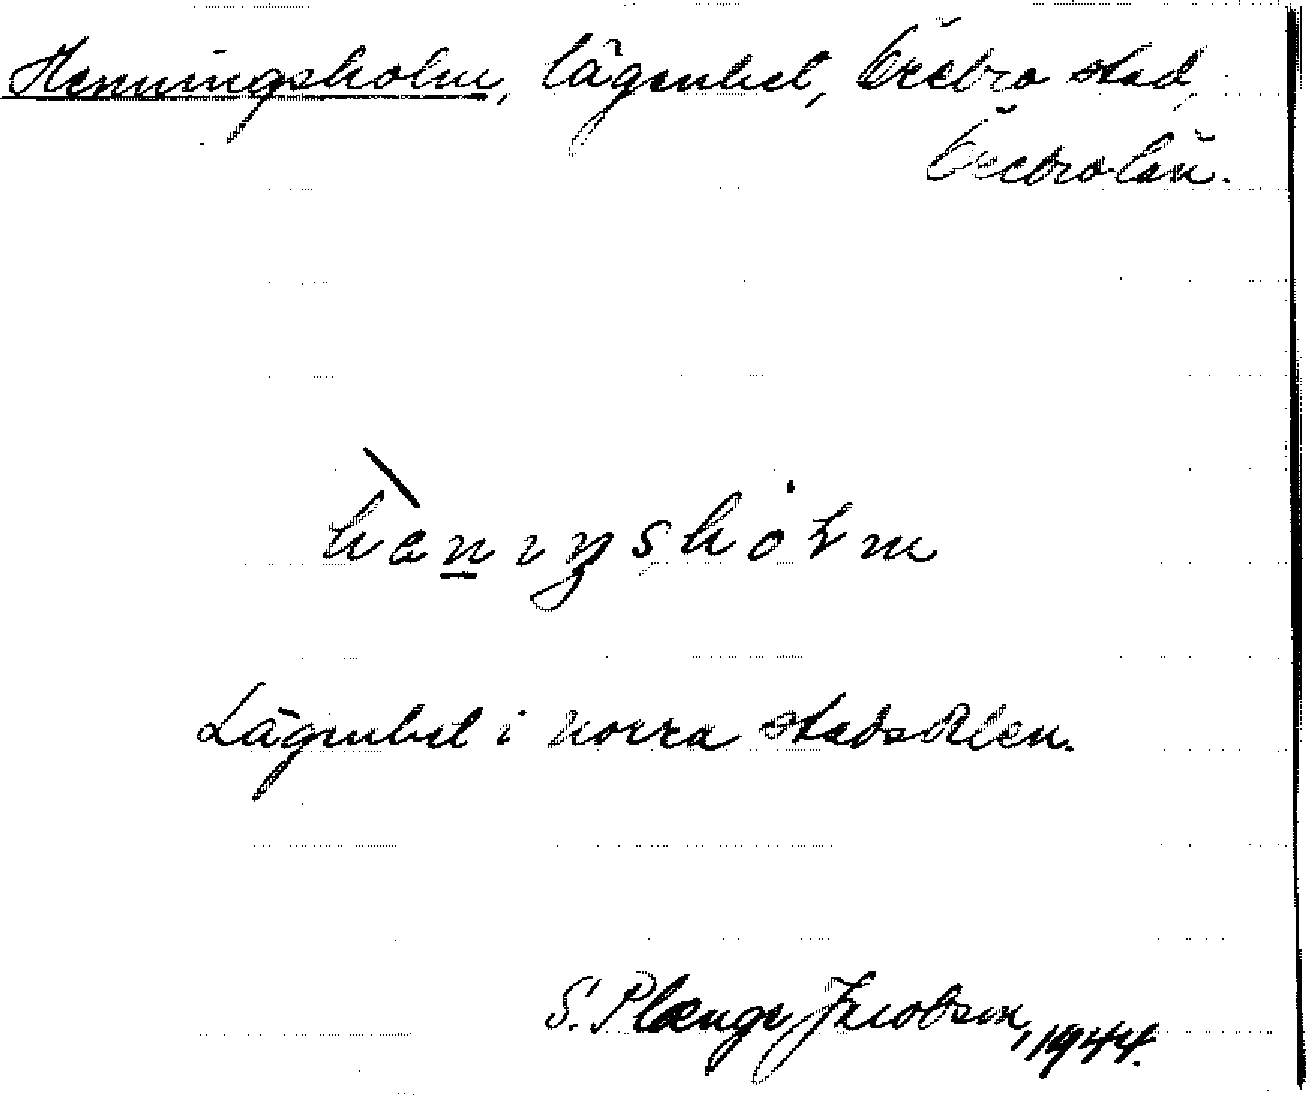 Henningsholm, lägenhet, Örebro stad,
Örebro län.
hènıŋshȯłm
Lägenhet i norra stadsdelen.
S. Plænge Jacobson, 1944.